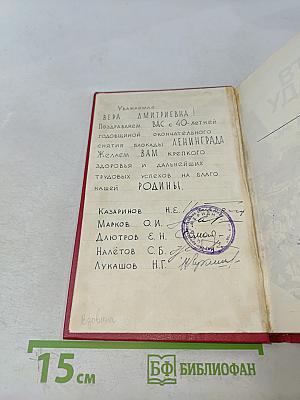 Уважаемая
ВЕРА ДМИТРИЕВНА!
Поздравляем ВАС с 40-летней
годовщиной окончательного
снятия блокады ЛЕНИНГРАДА
Желаем ВАМ крепкого
здоровья и дальнейших
трудовых успехов на благо
нашей РОДИНЫ.
Казаринов Н.Е.
Марков О.И.
Длютров Е.Н.
Налётов С.Б.
Лукашов Н.Г.
15 см
БФ БИБЛИОФАН